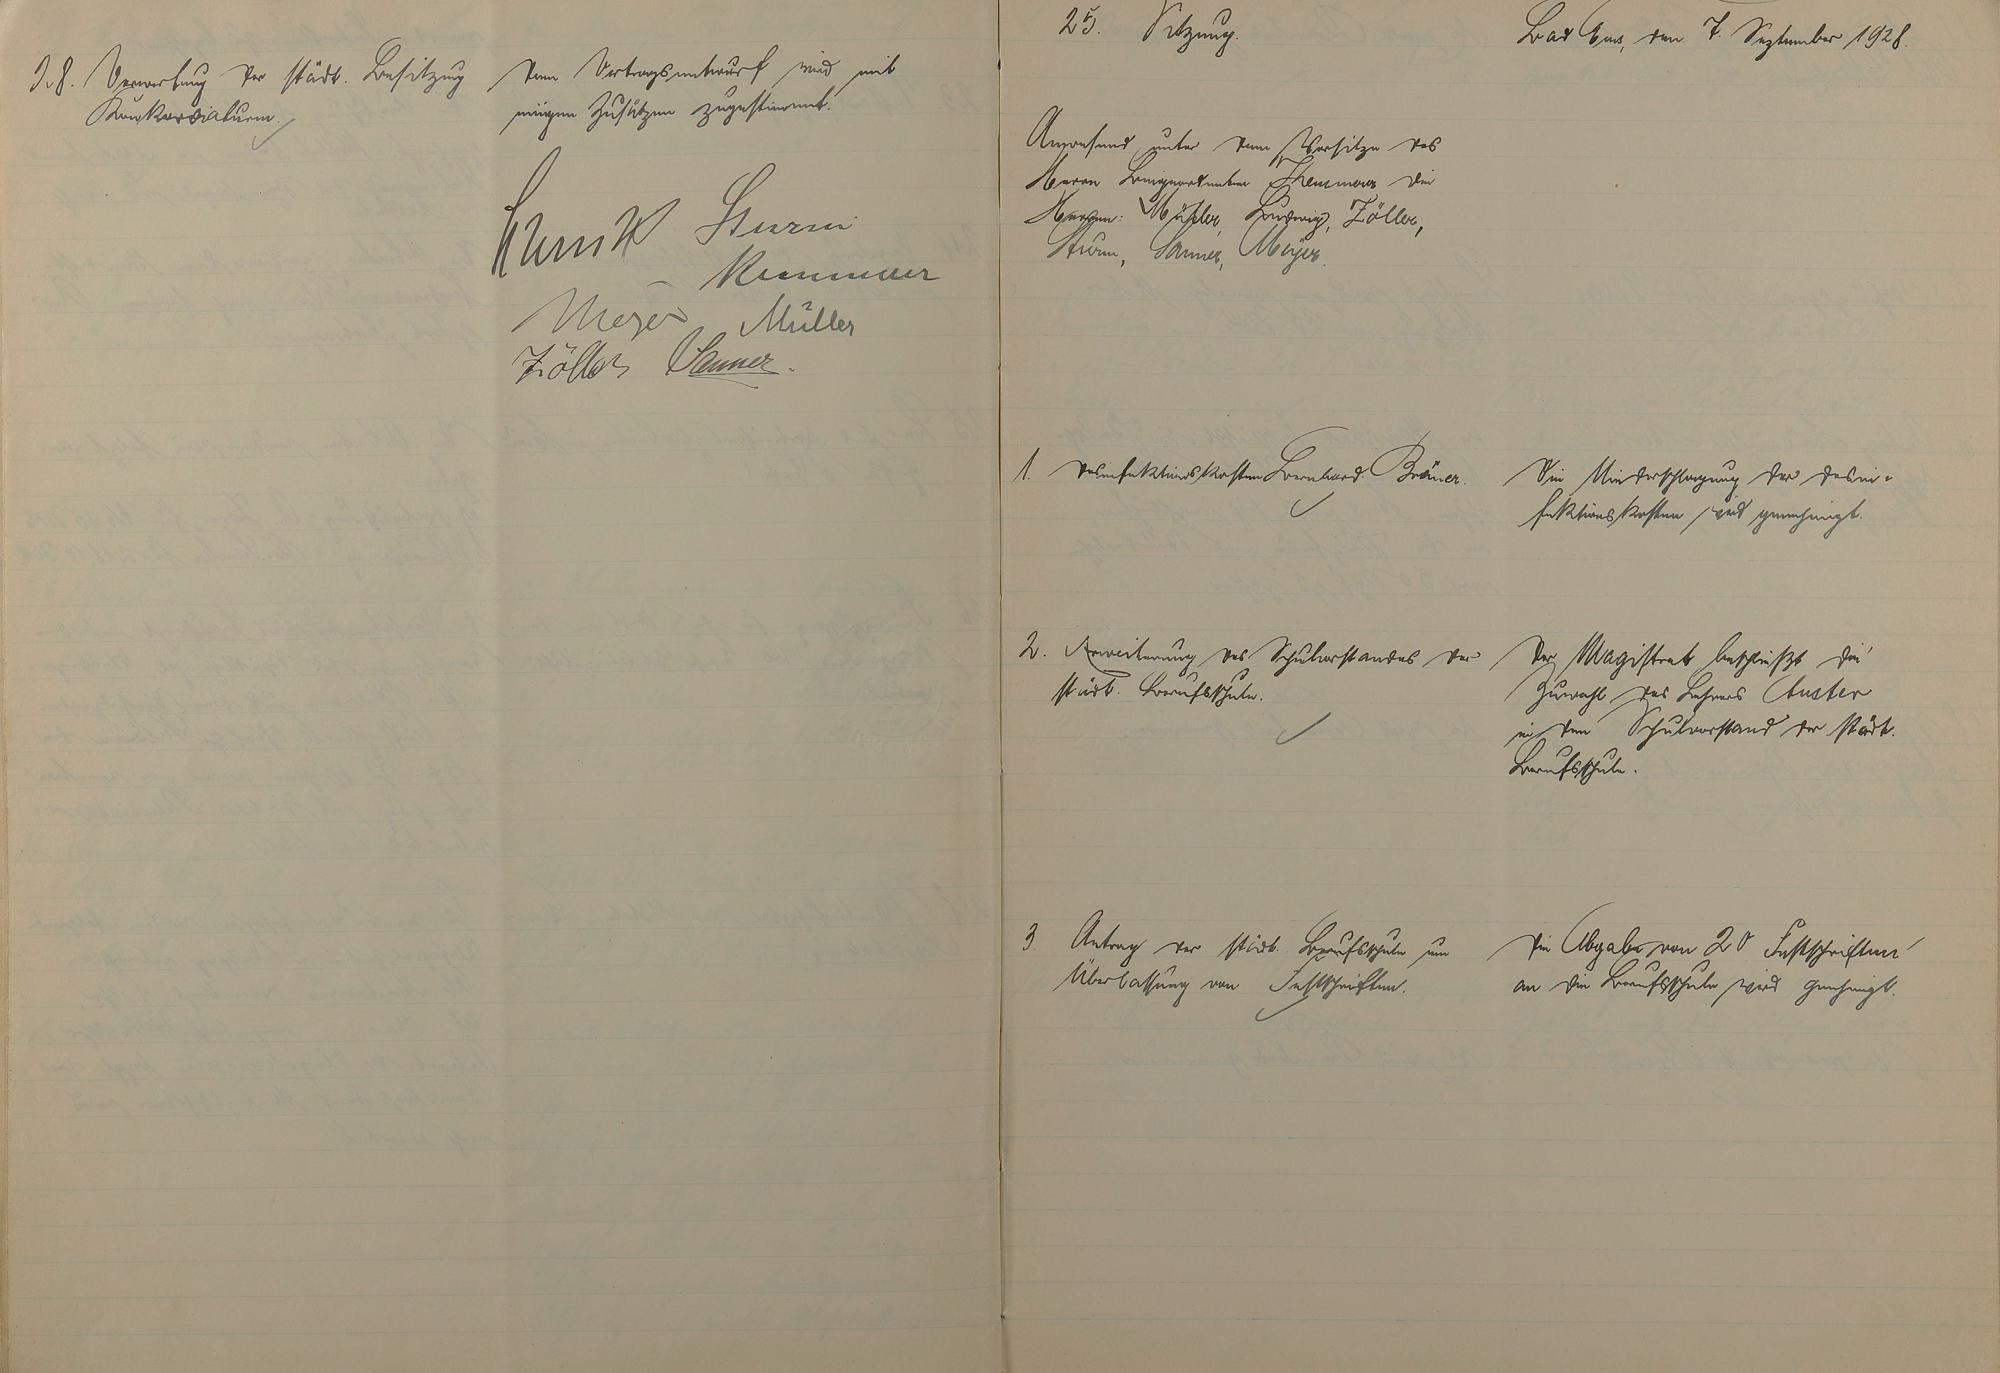 28. Verwertung der städt. Besitzung
Konkordiaturm.
Dem Vertragsentwurf wird mit
einigen Zusätzen zugestimmt.
Sturm
Kemmer
Meyer Müller
Zöller Sanner.
25. Sitzung.
Bad Ems, den 7. September 1928.
Anwesend unter dem Vorsitze des
Herrn Beigeordneten die
Herren: Müller, Ludwig, Zöller,
Sturm, Sanner, Meyer.
1. Desinfektionskosten Bernhard Bräuer.
Die Niederschlagung der Desin-
fektionskosten wird genehmigt.
2. Erweiterung des Schulvorstandes der
städt. Berufsschule.
Der Magistrat beschließt die
Zuwahl des Lehrers
in den Schulvorstand der städt.
Berufsschule.
3. Antrag der städt. Berufsschule um
Überlassung von Festschriften.
Die Abgabe von 20 Festschriften
an die Berufsschule wird genehmigt.